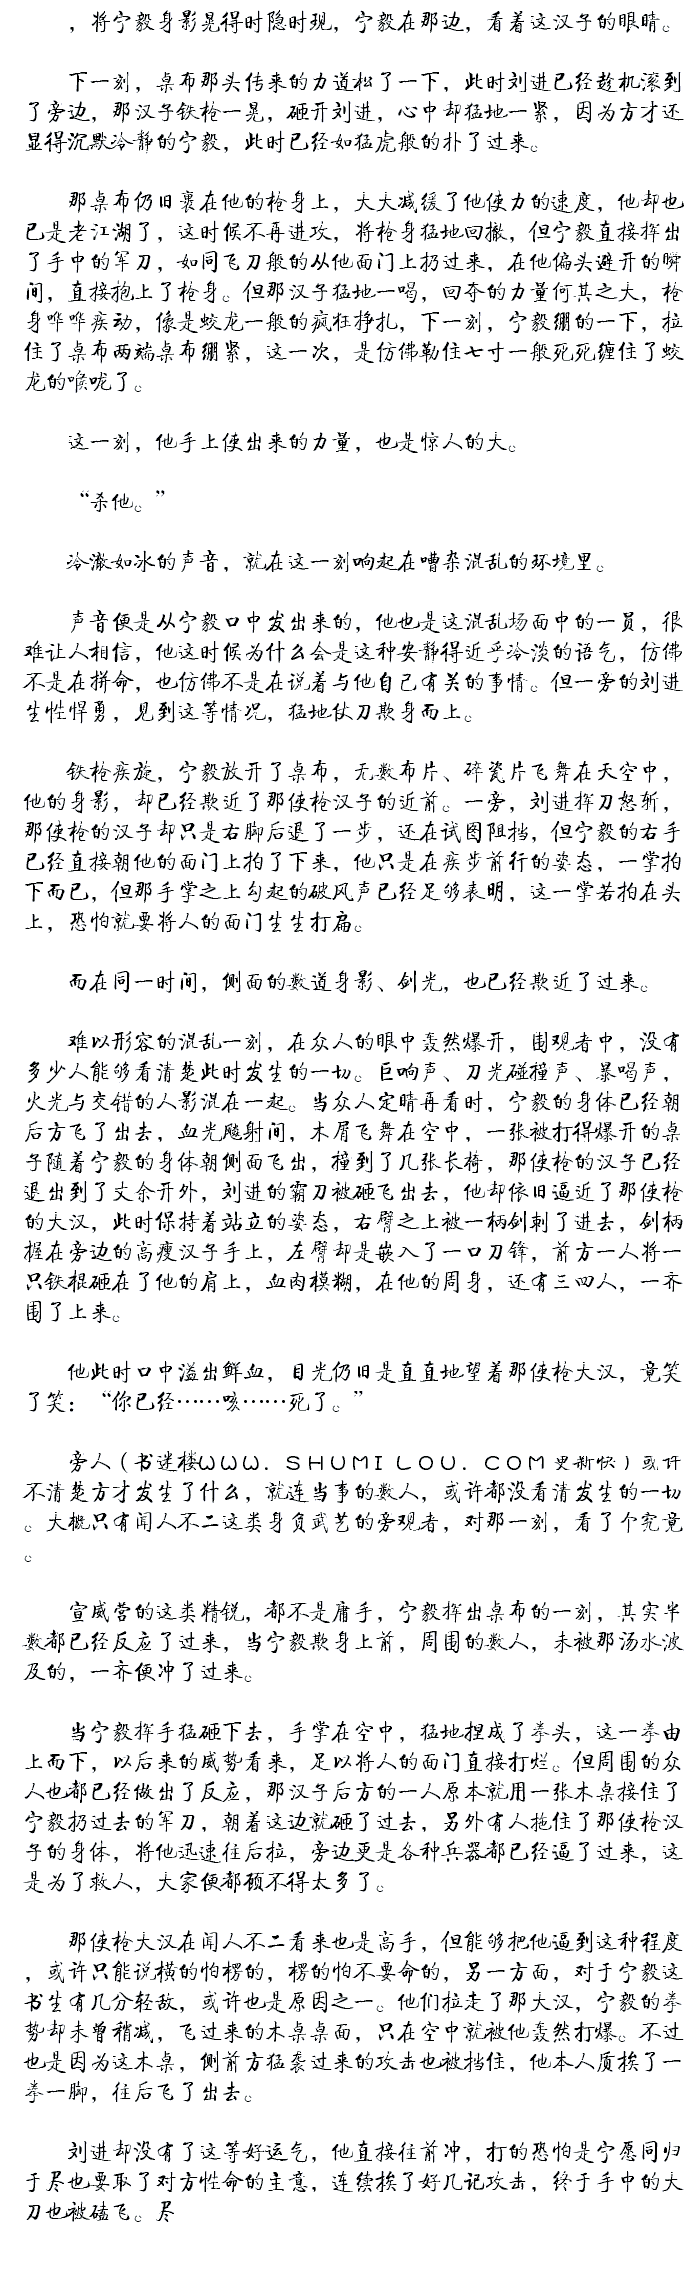 ，将宁毅身影晃得时隐时现，宁毅在那边，看着这汉子的眼睛。
下一刻，桌布那头传来的力道松了一下，此时刘进已经趁机滚到
了旁边，那汉子铁枪一晃，砸开刘进，心中却猛地一紧，因为方才还
显得沉默冷静的宁毅，此时已经如猛虎般的朴了过来。
那桌布仍旧裹在他的枪身上，大大减缓了他使力的速度，他却也
已是老江湖了，这时候不再进攻，将枪身猛地回撤，但宁毅直接挥出
了手中的军刀，如同飞刀般的从他面门上扔过来，在他偏头避开的瞬
间，直接抱上了枪身。但那汉子猛地一喝，回夺的力量何其之大，枪
身哗哗疾动，像是蛟龙一般的疯狂挣扎，下一刻，宁毅绷的一下，拉
住了桌布两端桌布绷紧，这一次，是仿佛勒住七寸一般死死缠住了蛟
龙的喉咙了。
这一刻，他手上使出来的力量，也是惊人的大。
“杀他。”
冷澈如冰的声音，就在这一刻响起在嘈杂混乱的环境里。
声音便是从宁毅口中发出来的，他也是这混乱场面中的一员，很
难让人相信，他这时候为什么会是这种安静得近乎冷淡的语气，仿佛
不是在拼命，也仿佛不是在说着与他自己有关的事情。但一旁的刘进
生性悍勇，见到这等情况，猛地仗刀欺身而上。
铁枪疾旋，宁毅放开了桌布，无数布片、碎瓷片飞舞在天空中，
他的身影，却已经欺近了那使枪汉子的近前。一旁，刘进挥刀怒斩，
那使枪的汉子却只是右脚后退了一步，还在试图阻挡，但宁毅的右手
已经直接朝他的面门上拍了下来，他只是在疾步前行的姿态，一掌拍
下而已，但那手掌之上勾起的破风声已经足够表明，这一掌若拍在头
上，恐怕就要将人的面门生生打扁。
而在同一时间，侧面的数道身影、剑光，也已经欺近了过来。
难以形容的混乱一刻，在众人的眼中轰然爆开，围观者中，没有
多少人能够看清楚此时发生的一切。巨响声、刀光碰撞声、暴喝声，
火光与交错的人影混在一起。当众人定睛再看时，宁毅的身体已经朝
后方飞了出去，血光飚射间，木屑飞舞在空中，一张被打得爆开的桌
子随着宁毅的身体朝侧面飞出，撞到了几张长椅，那使枪的汉子已经
退出到了丈余开外，刘进的霸刀被砸飞出去，他却依旧逼近了那使枪
的大汉，此时保持着站立的姿态，右臂之上被一柄剑刺了进去，剑柄
握在旁边的高瘦汉子手上，左臂却是嵌入了一口刀锋，前方一人将一
只铁棍砸在了他的肩上，血肉模糊，在他的周身，还有三四人，一齐
围了上来。
他此时口中溢出鲜血，目光仍旧是直直地望着那使枪大汉，竟笑
了笑：“你已经……咳……死了。”
旁人（书迷楼ＷＷＷ．ＳＨＵＭＩＬＯＵ．ＣＯＭ更新快）或许
不清楚方才发生了什么，就连当事的数人，或许都没看清发生的一切
。大概只有闻人不二这类身负武艺的旁观者，对那一刻，看了个究竟
。
宣威营的这类精锐，都不是庸手，宁毅挥出桌布的一刻，其实半
数都已经反应了过来，当宁毅欺身上前，周围的数人，未被那汤水波
及的，一齐便冲了过来。
当宁毅挥手猛砸下去，手掌在空中，猛地捏成了拳头，这一拳由
上而下，以后来的威势看来，足以将人的面门直接打烂。但周围的众
人也都已经做出了反应，那汉子后方的一人原本就用一张木桌接住了
宁毅扔过去的军刀，朝着这边就砸了过去，另外有人拖住了那使枪汉
子的身体，将他迅速往后拉，旁边更是各种兵器都已经逼了过来，这
是为了救人，大家便都顾不得太多了。
那使枪大汉在闻人不二看来也是高手，但能够把他逼到这种程度
，或许只能说横的怕楞的，楞的怕不要命的，另一方面，对于宁毅这
书生有几分轻敌，或许也是原因之一。他们拉走了那大汉，宁毅的拳
势却未曾稍减，飞过来的木桌桌面，只在空中就被他轰然打爆。不过
也是因为这木桌，侧前方猛袭过来的攻击也被挡住，他本人质挨了一
拳一脚，往后飞了出去。
刘进却没有了这等好运气，他直接往前冲，打的恐怕是宁愿同归
于尽也要取了对方性命的主意，连续挨了好几记攻击，终于手中的大
刀也被磕飞。尽